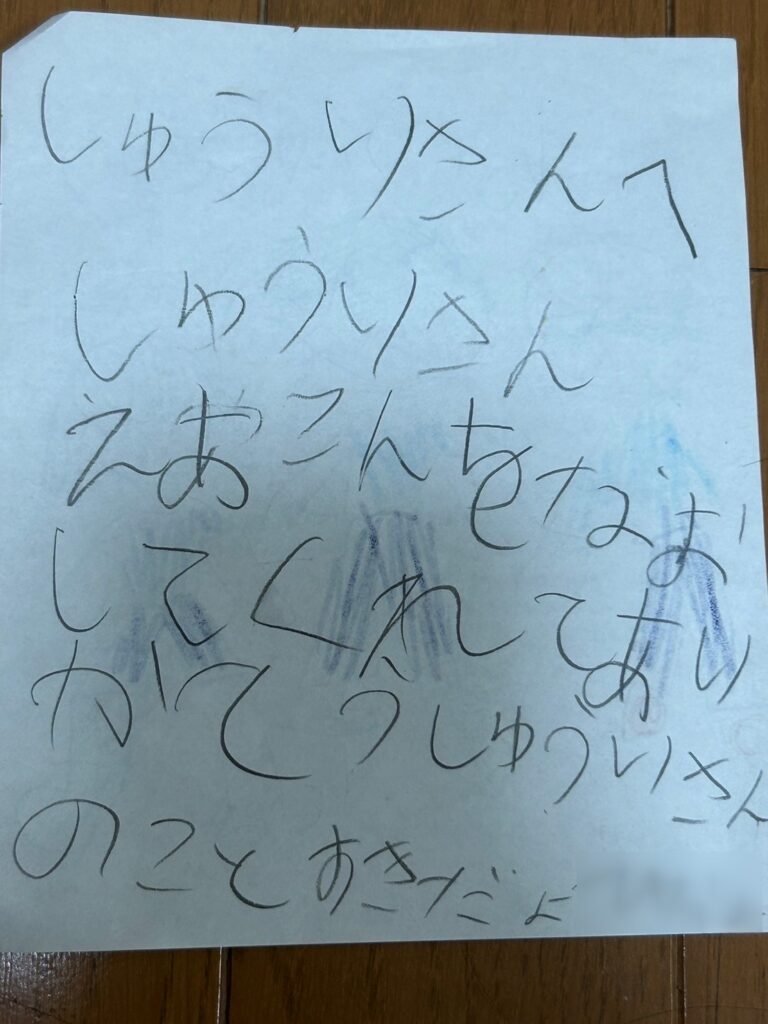 しゅうりさんへ
しゅうりさん
えあこんをなお
してくれてあり
がとうしゅうりさん
のことすきだよ